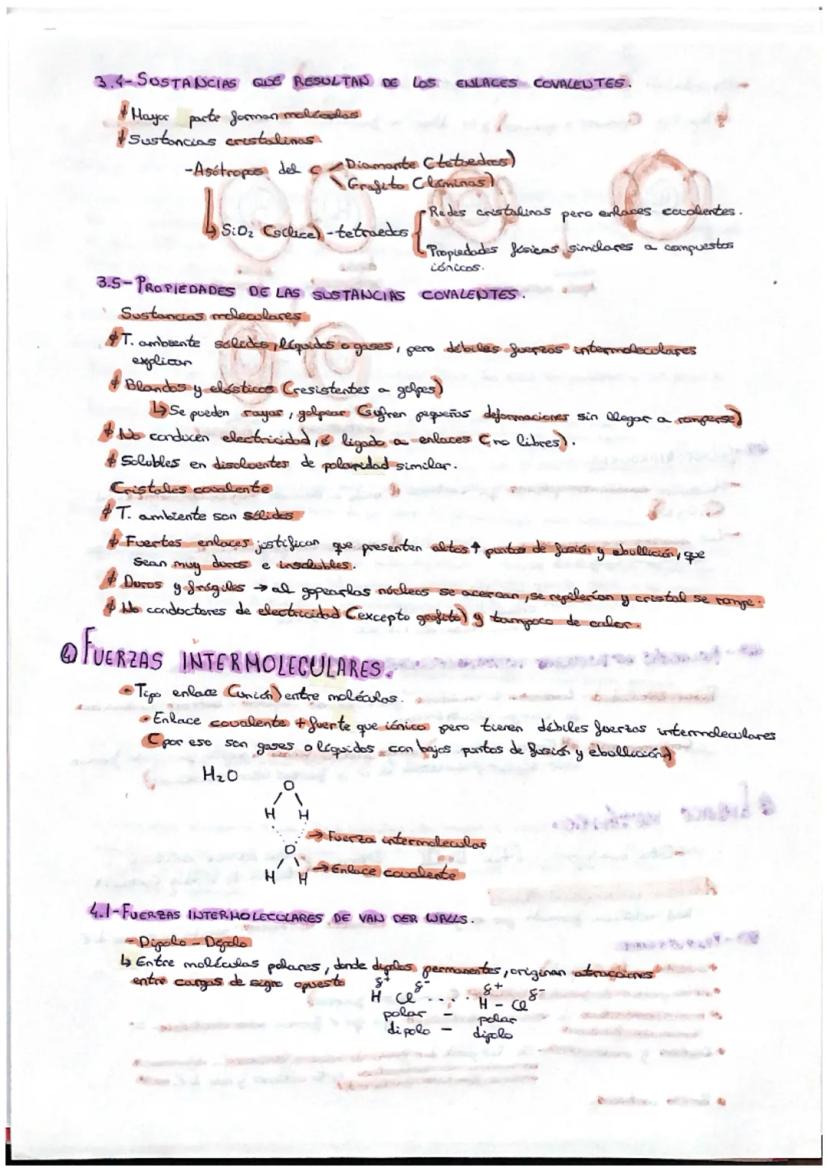 3.4-SUSTANCIAS QUE RESULTAN DE LOS ENLACES COVALENTES.
Mayor parte forman moléculas
Sustancias cristalinas
-Asótropos del C Diamante (tetraedros)
Grafito (láminas)
Redes cristalinas pero enlaces covalentes.
↳ SiO2 (sílice) - tetraedos
Propiedades físicas similares a compuestos
iónicos.
3.5-PROPIEDADES DE LAS SUSTANCIAS COVALENTES.
Sustancias moleculares
T. ambiente sólidos, líquidos o gases, pero débiles fuerzas intermoleculares
explican
Blandos y elásticos (resistentes a golpes)
↳ Se pueden rayar, golpear (sufren pequeñas deformaciones sin llegar a romperse)
No conducen electricidad, é ligado a enlaces (no libres).
Solubles en disolventes de polaridad similar.
Cristales covalente
T. ambiente son sólidos
Fuertes enlaces justifican que presenten altos ↑ puntos de fusión y ebullición, que
sean muy duros e insolubles.
Duros y frágiles → al gopearlos núcleos se acercan, se repelerían y cristal se rompe.
No conductores de electricidad (excepto grafito) y tampoco de calor.
④ FUERZAS INTERMOLECULARES.
• Tipo enlace (unión) entre moléculas.
• Enlace covalente + fuerte que iónico pero tienen débiles fuerzas intermoleculares
(por eso son gases o líquidos con bajos puntos de fusión y ebullición)
H2O
O
H H
→ Fuerza intermolecular
O
H H → Enlace covalente
4.1-FUERZAS INTERMOLECULARES DE VAN DER WALLS.
- Dipolo - Dipolo
↳ Entre moléculas polares, donde dipolos permanentes, originan atracciones
entre cargas de signo opuesto
δ+ δ- δ+ δ-
H Cl .... H - Cl
polar - polar
dipolo - dipolo